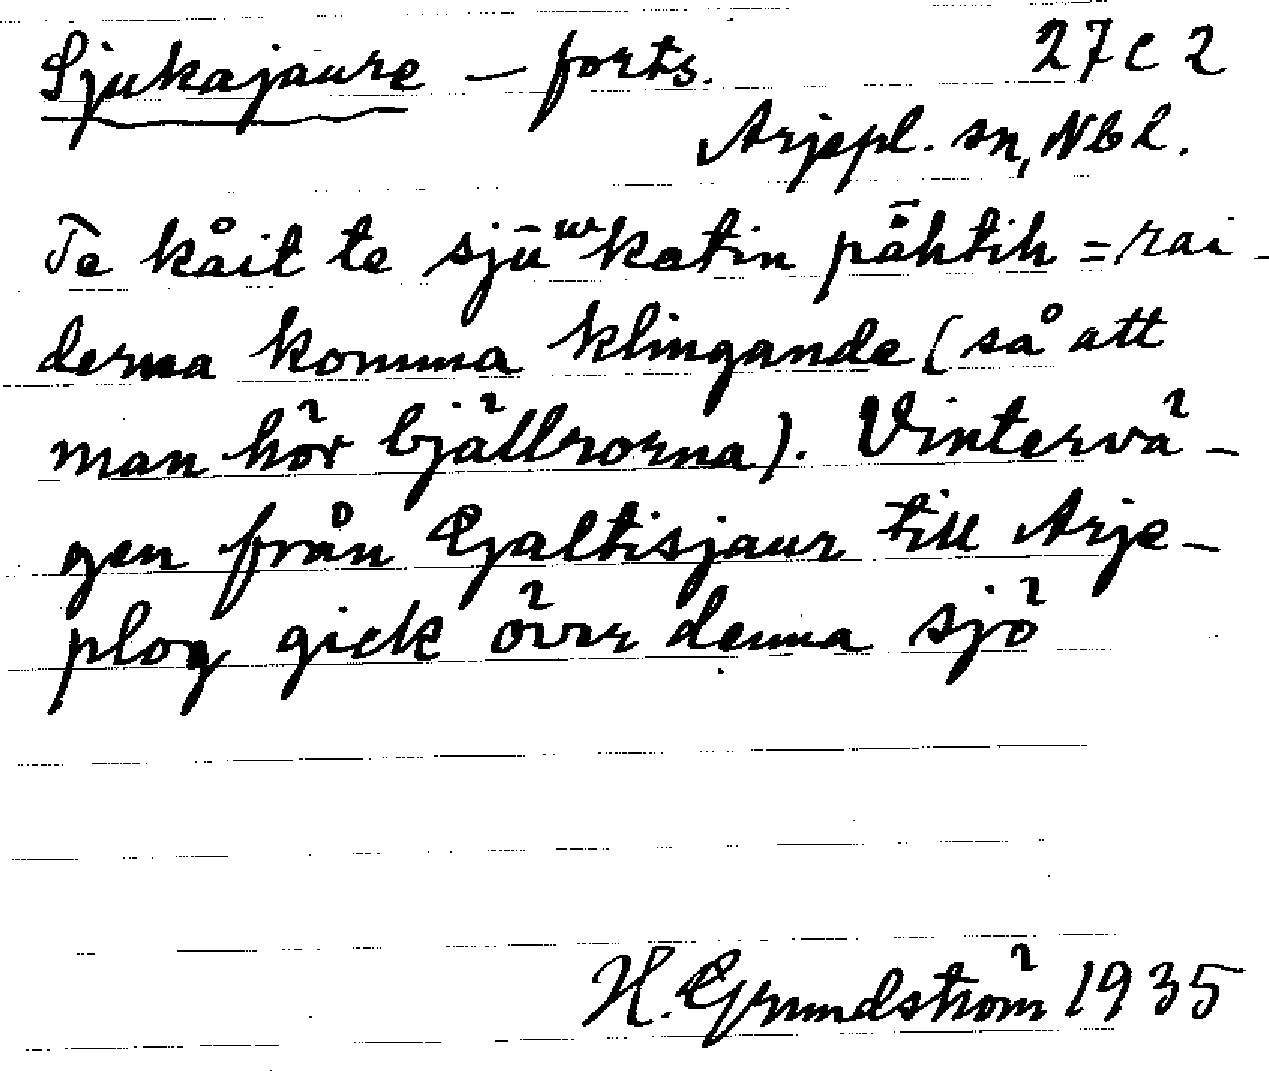 Sjukajaure – forts. 27 C 2
Arjepl. sn, Nbl.
Te kåit te sjūʷkatin pāhtih = rai-
derna komma klingande (så att
man hör bjällrorna). Vintervä-
gen från Galtisjaur till Arje-
plog gick över denna sjö
H. Grundström 1935